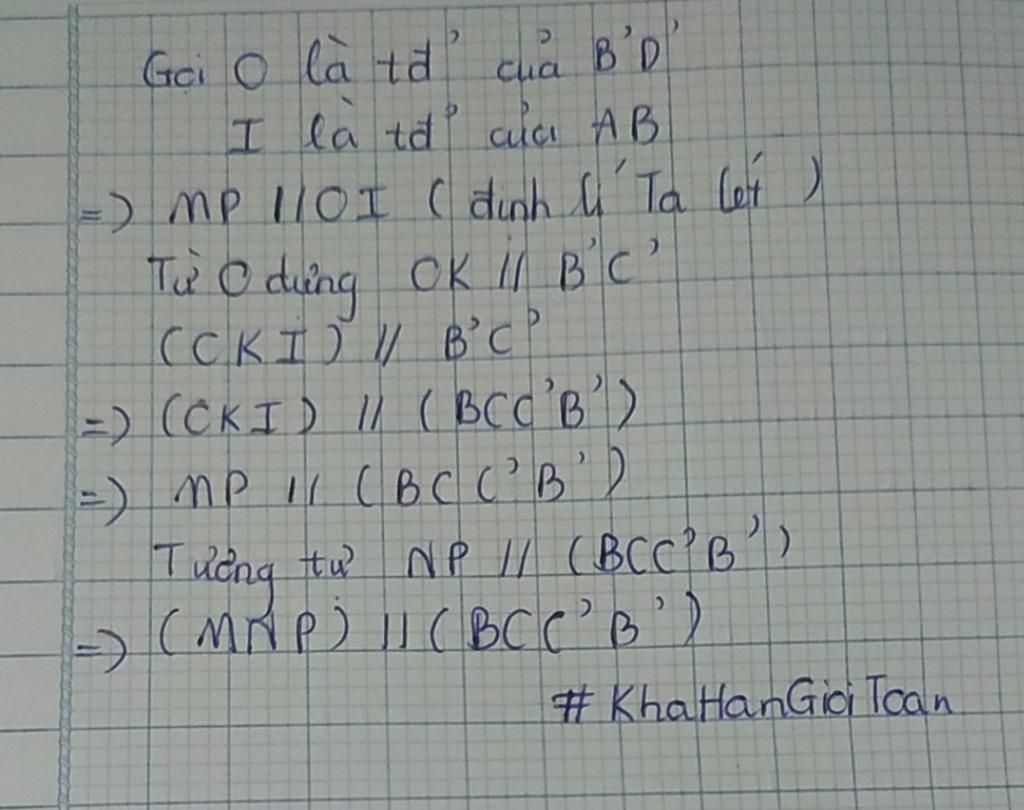 Gọi O là tđ' của B'D'
I là tđ' của AB
=) MP // OI ( định lí Ta lét )
Từ O dựng OK // B'C'
(OKI) // B'C'
=) (OKI) // (BCC'B')
=) MP // (BCC'B')
Tương tự NP // (BCC'B')
=) (MNP) // (BCC'B')
# KhaHanGioiToan